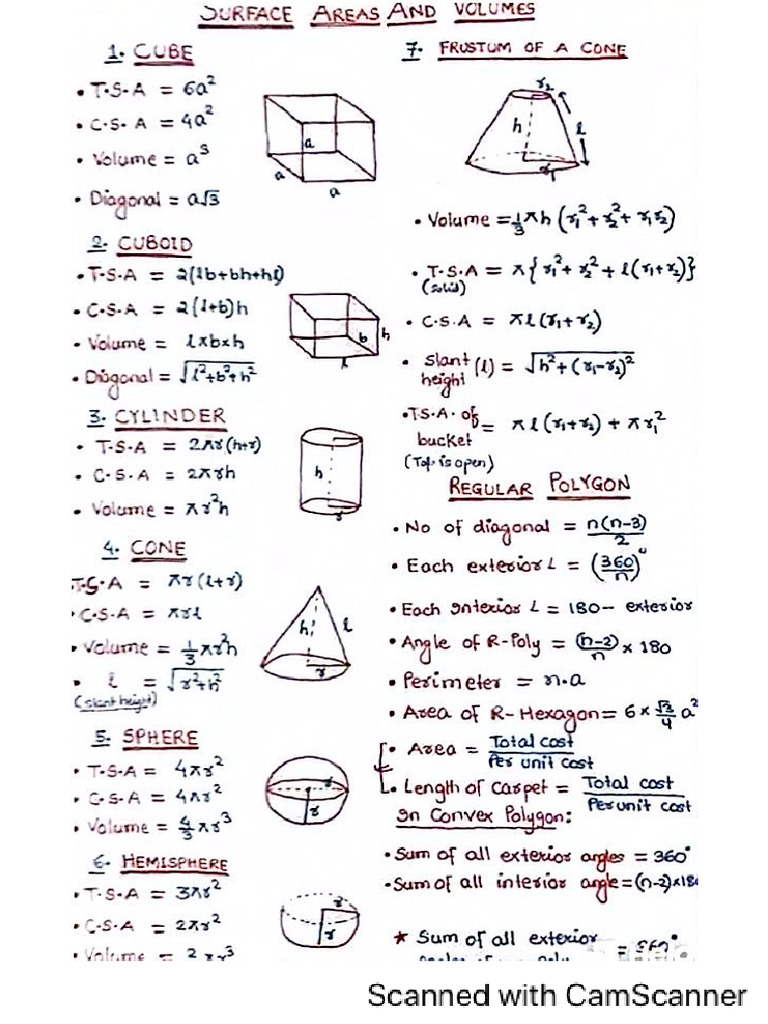 SURFACE AREAS AND VOLUMES
1. CUBE
• T.S.A = 6a²
• C.S.A = 4a²
• Volume = a³
• Diagonal = a√3
a
a
a
2. CUBOID
• T.S.A = 2(lb+bh+hl)
• C.S.A = 2(l+b)h
• Volume = l×b×h
• Diagonal = √l²+b²+h²
h
b
l
3. CYLINDER
• T.S.A = 2πr(h+r)
• C.S.A = 2πrh
• Volume = πr²h
h
r
4. CONE
T.S.A = πr(l+r)
• C.S.A = πrl
• Volume = 1/3 πr²h
• l = √r²+h²
(slant height)
h
l
r
5. SPHERE
• T.S.A = 4πr²
• C.S.A = 4πr²
• Volume = 4/3 πr³
r
r
6. HEMISPHERE
• T.S.A = 3πr²
• C.S.A = 2πr²
• Volume = 2 πr³
r
r
7. FRUSTUM OF A CONE
r₂
h
l
r₁
• Volume = 1/3 πh (r₁²+r₂²+r₁r₂)
• T.S.A = π{r₁²+r₂²+l(r₁+r₂)}
(solid)
• C.S.A = πl(r₁+r₂)
• Slant (l) = √h²+(r₁-r₂)²
height
• T.S.A. of = πl(r₁+r₂) + πr₁²
bucket
(Top is open)
REGULAR POLYGON
• No of diagonal = n(n-3)/2
• Each exterior ∠ = (360/n)°
• Each Interior ∠ = 180- exterior
• Angle of R-Poly = (n-2)/n × 180
• Perimeter = n.a
• Area of R-Hexagon = 6 × √3/4 a²
• Area = Total cost/Per unit cost
• Length of carpet = Total cost/Per unit cost
In Convex Polygon:
• Sum of all exterior angles = 360°
• Sum of all interior angle = (n-2)×18
★ Sum of all exterior = 360°
Scanned with CamScanner